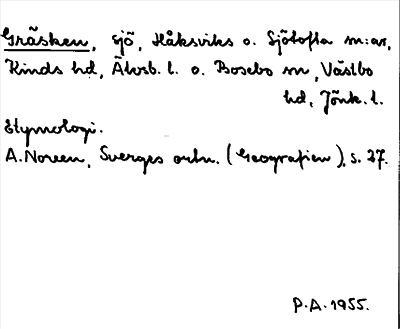 Gräsken, sjö, Håksviks o. Sjötofta m:ar,
Kinds hd, Älvsb. l. o. Bosebo sn, Västbo
hd, Jönk. l.
Etymologi.
A. Noreen, Sverges ortn. (Geografien), s. 27.
P.A. 1955.